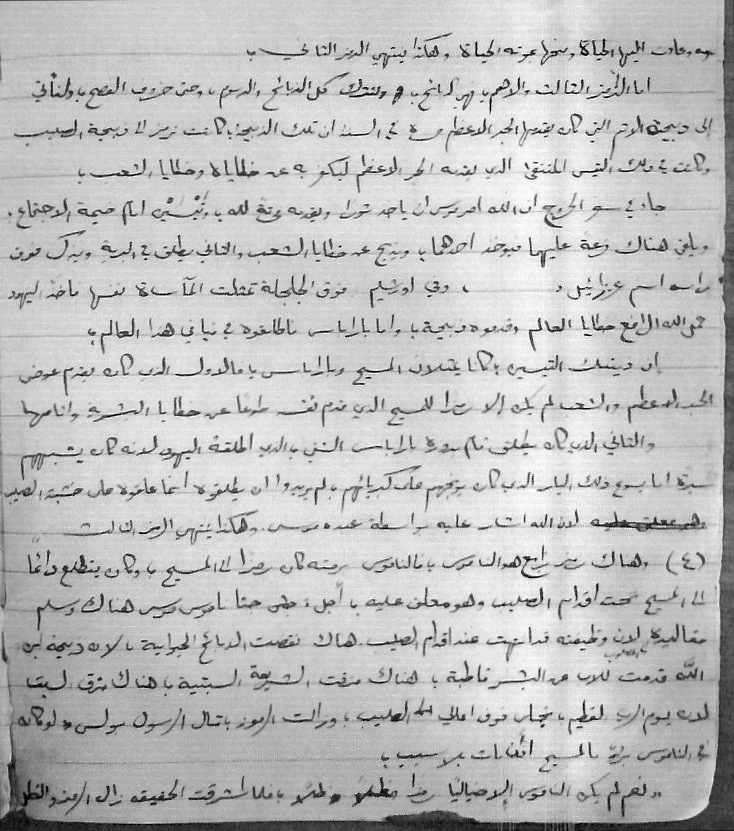 وعادت اليها الحياة ومنحها عربة الحياة وهكذا ينتهي الرمز الثاني
اما الرمز الثالث والاهم فهي الذبائح ولنترك كل الذبائح والرسوم وحتى خروف الفصح ولنأتي
إلى ذبيحة الاثم التي كان يقدمها الحبر الاعظم مرة في السنة ان تلك الذبيحة كانت ترمز الى ذبيحة الصليب
وكانت في ذلك التيس المنتقى الذي يقدمه الحبر الاعظم ليكفر به عن خطاياه وخطايا الشعب
جاء في سفر الخروج ان الله امر موسى ان ياخذ ثورا ويقدمه محرقة لله وتيسين امام خيمة الاجتماع
ويلقى هناك قرعة عليهما فيؤخذ احدهما ويذبح عن خطايا الشعب والثاني يطلق في البرية ويترك فوق
راسه اسم عزرائيل ، وفي اورشليم فوق الجلجلة تمثلت المأساة نفسها فاخذ اليهود
حمل الله الرافع خطايا العالم وقدموه ذبيحة واما باراباس فاطلقوه في فيافي هذا العالم
إن ذينك التيسين كانا يمثلان المسيح وباراباس فالاول الذي كان يقدم عوض
الحبر الاعظم والشعب لم يكن إلا رمزا للمسيح الذي قدم نفسه طوعا عن خطايا البشرية واثامها
والثاني الذي كان يطلق قام بدوره باراباس الشقي الذي اطلقه اليهود لانه كان يشبههم
سيرة اما يسوع ذلك البار الذي كان يوبخهم على كبريائهم لم يريدوا ان يطلقوه انما علقوه على خشبة الصليب
لان الله اشار عليه بواسطة عبده موسى. وهكذا ينتهي الرمز الثالث
(٤) وهناك رمز رابع هو الناموس فالناموس برمته كان رمزا الى المسيح وكان يتطلع دائما
الى المسيح تحت اقدام الصليب وهو معلق عليه أجل: طرح حقا ناموس موسى هناك وسلم
مقاليده لان وظيفته قد انتهت عند اقدام الصليب. هناك نقضت الذبائح الحيوانية لان ذبيحة ابن
الله قدمت للاب عن البشر قاطبة هناك مزقت الشريعة السبتية هناك مزق السبت
لان يوم الرب العظيم تجلى فوق اعالي الصليب وزالت الرموز قال الرسول بولس «لو كان
في الناموس بر فالمسيح اذا مات بلا سبب
« نعم لم يكن الناموس إلا خيالا رمزا وظلا فلما اشرقت الحقيقه زال الرمز والظل